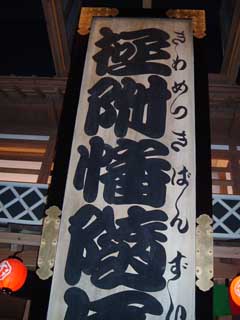 極附幡隨
きわめつきばんずい